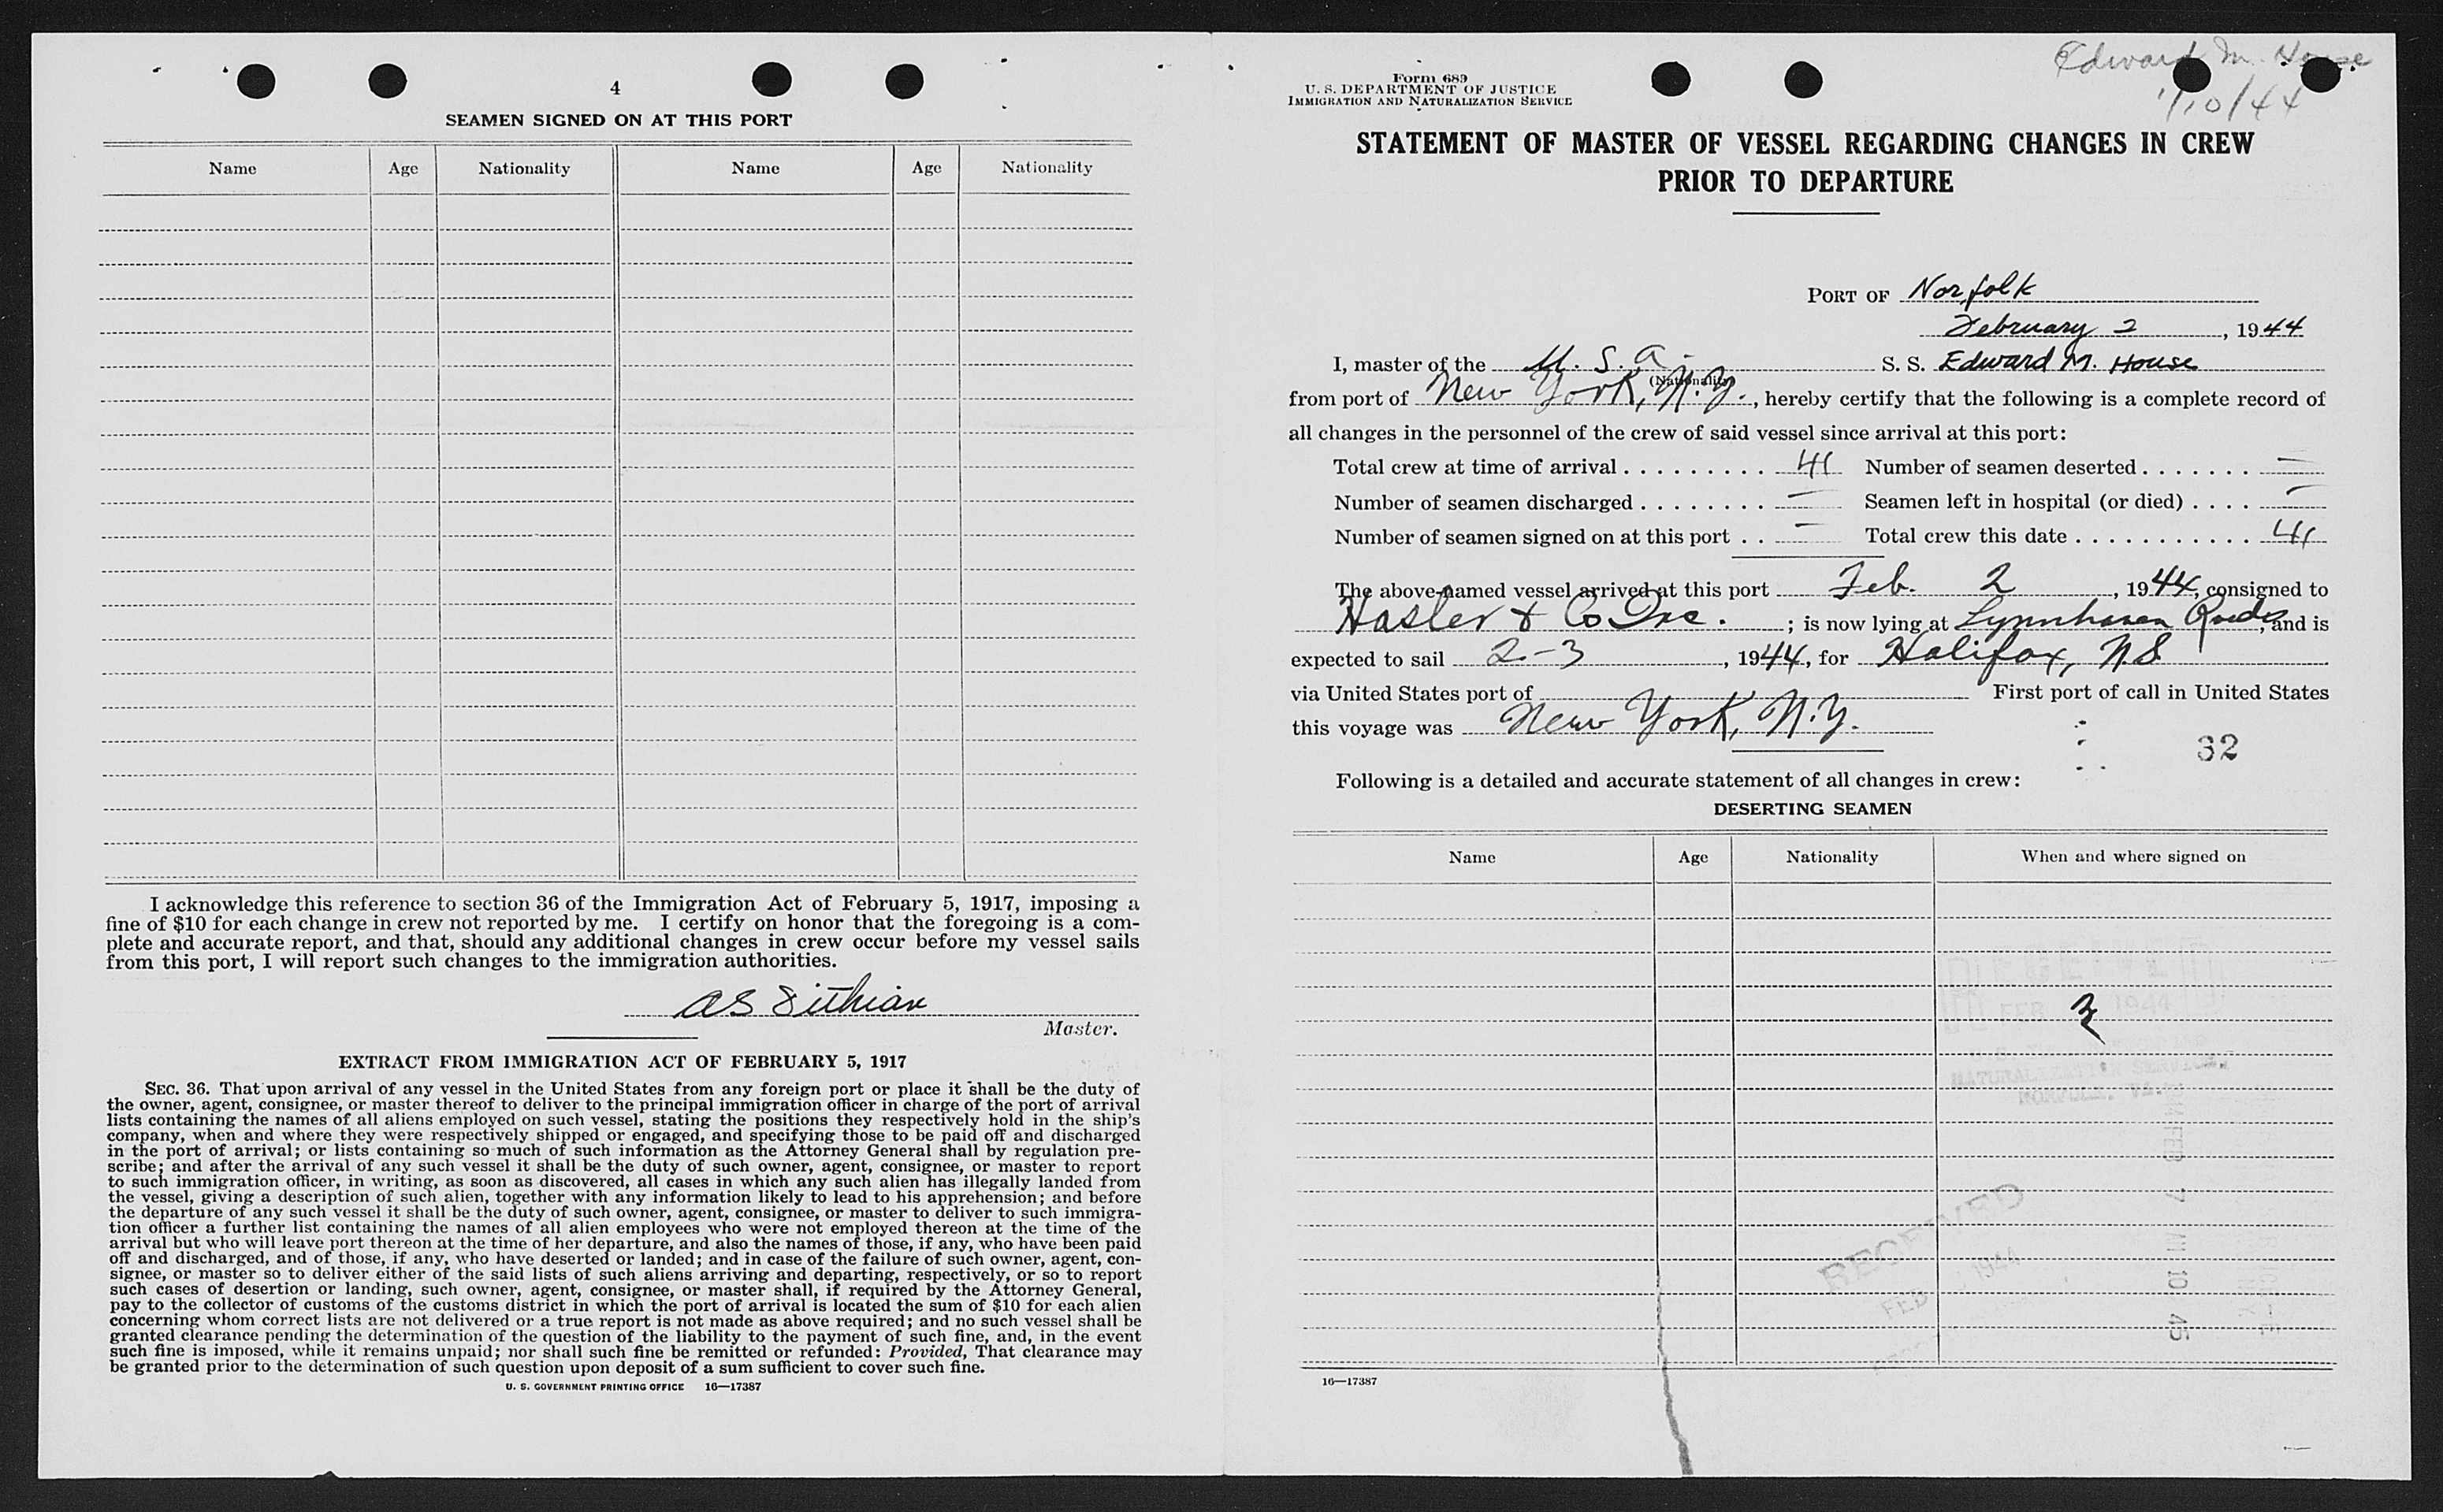 4
SEAMEN SIGNED ON AT THIS PORT
Name Age Nationality Name Age Nationality
I acknowledge this reference to section 36 of the Immigration Act of February 5, 1917, imposing a
fine of $10 for each change in crew not reported by me. I certify on honor that the foregoing is a com-
plete and accurate report, and that, should any additional changes in crew occur before my vessel sails
from this port, I will report such changes to the immigration authorities.
AS
Master.
EXTRACT FROM IMMIGRATION ACT OF FEBRUARY 5, 1917
SEC. 36. That upon arrival of any vessel in the United States from any foreign port or place it shall be the duty of
the owner, agent, consignee, or master thereof to deliver to the principal immigration officer in charge of the port of arrival
lists containing the names of all aliens employed on such vessel, stating the positions they respectively hold in the ship's
company, when and where they were respectively shipped or engaged, and specifying those to be paid off and discharged
in the port of arrival; or lists containing so much of such information as the Attorney General shall by regulation pre-
scribe; and after the arrival of any such vessel it shall be the duty of such owner, agent, consignee, or master to report
to such immigration officer, in writing, as soon as discovered, all cases in which any such alien has illegally landed from
the vessel, giving a description of such alien, together with any information likely to lead to his apprehension; and before
the departure of any such vessel it shall be the duty of such owner, agent, consignee, or master to deliver to such immigra-
tion officer a further list containing the names of all alien employees who were not employed thereon at the time of the
arrival but who will leave port thereon at the time of her departure, and also the names of those, if any, who have been paid
off and discharged, and of those, if any, who have deserted or landed; and in case of the failure of such owner, agent, con-
signee, or master so to deliver either of the said lists of such aliens arriving and departing, respectively, or so to report
such cases of desertion or landing, such owner, agent, consignee, or master shall, if required by the Attorney General,
pay to the collector of customs of the customs district in which the port of arrival is located the sum of $10 for each alien
concerning whom correct lists are not delivered or a true report is not made as above required; and no such vessel shall be
granted clearance pending the determination of the question of the liability to the payment of such fine, and, in the event
such fine is imposed, while it remains unpaid; nor shall such fine be remitted or refunded: Provided, That clearance may
be granted prior to the determination of such question upon deposit of a sum sufficient to cover such fine.
U. S. GOVERNMENT PRINTING OFFICE 16—17387
Edward M. House
1/10/44
Form 689
U. S. DEPARTMENT OF JUSTICE
IMMIGRATION AND NATURALIZATION SERVICE
STATEMENT OF MASTER OF VESSEL REGARDING CHANGES IN CREW
PRIOR TO DEPARTURE
PORT OF Norfolk
February 2, 1944
I, master of the U. S. A. S. S. Edward M. House
(Nationality)
from port of New York, N.Y., hereby certify that the following is a complete record of
all changes in the personnel of the crew of said vessel since arrival at this port:
Total crew at time of arrival . . . . . . . . . . 41 Number of seamen deserted . . . . . . . —
Number of seamen discharged . . . . . . . . — Seamen left in hospital (or died) . . . . —
Number of seamen signed on at this port . . — Total crew this date . . . . . . . . . . . . 41
The above-named vessel arrived at this port Feb. 2, 1944, consigned to
Hasler & Co Inc. ; is now lying at Lynnhaven Roads, and is
expected to sail 2-3, 1944, for Halifax, N.S
via United States port of First port of call in United States
this voyage was New York, N.Y.
32
Following is a detailed and accurate statement of all changes in crew:
DESERTING SEAMEN
Name Age Nationality When and where signed on
FEB 1944
NATURALIZATION SERVICE
NORFOLK, VA.
RECEIVED
FEB 1944
FEB 7 10 45
16—17387